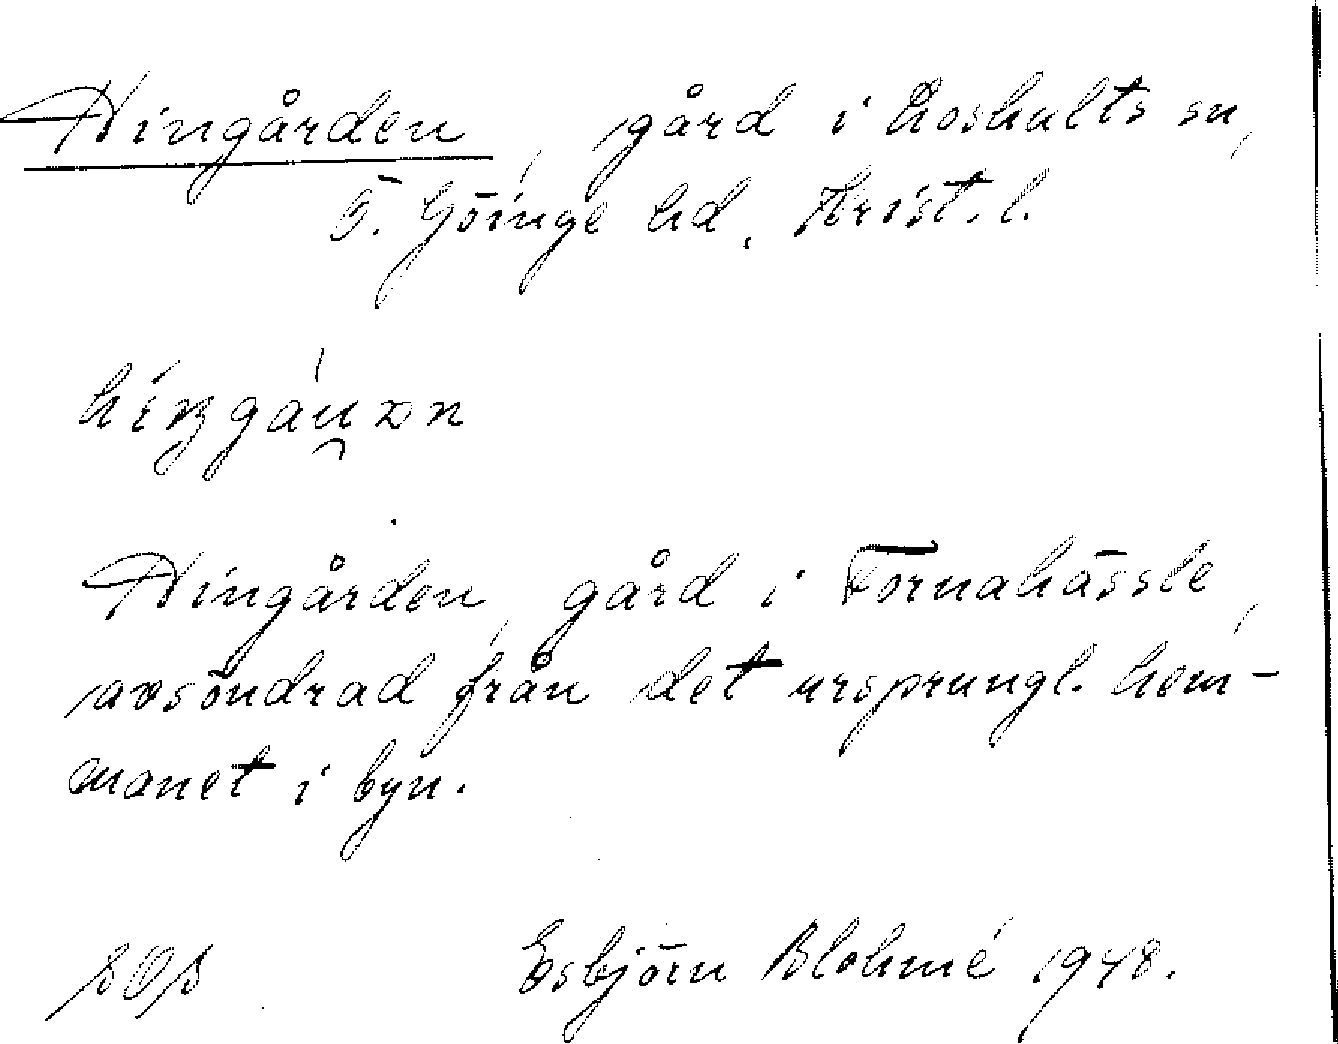 Hingården, gård i Loshults sn,
Ö. Göinge hd, Krist. l.
Hingården, gård i Tornahässle,
avsöndrad från det ursprungl. hem-
manet i byn.
SOS Esbjörn Blohmé 1948.